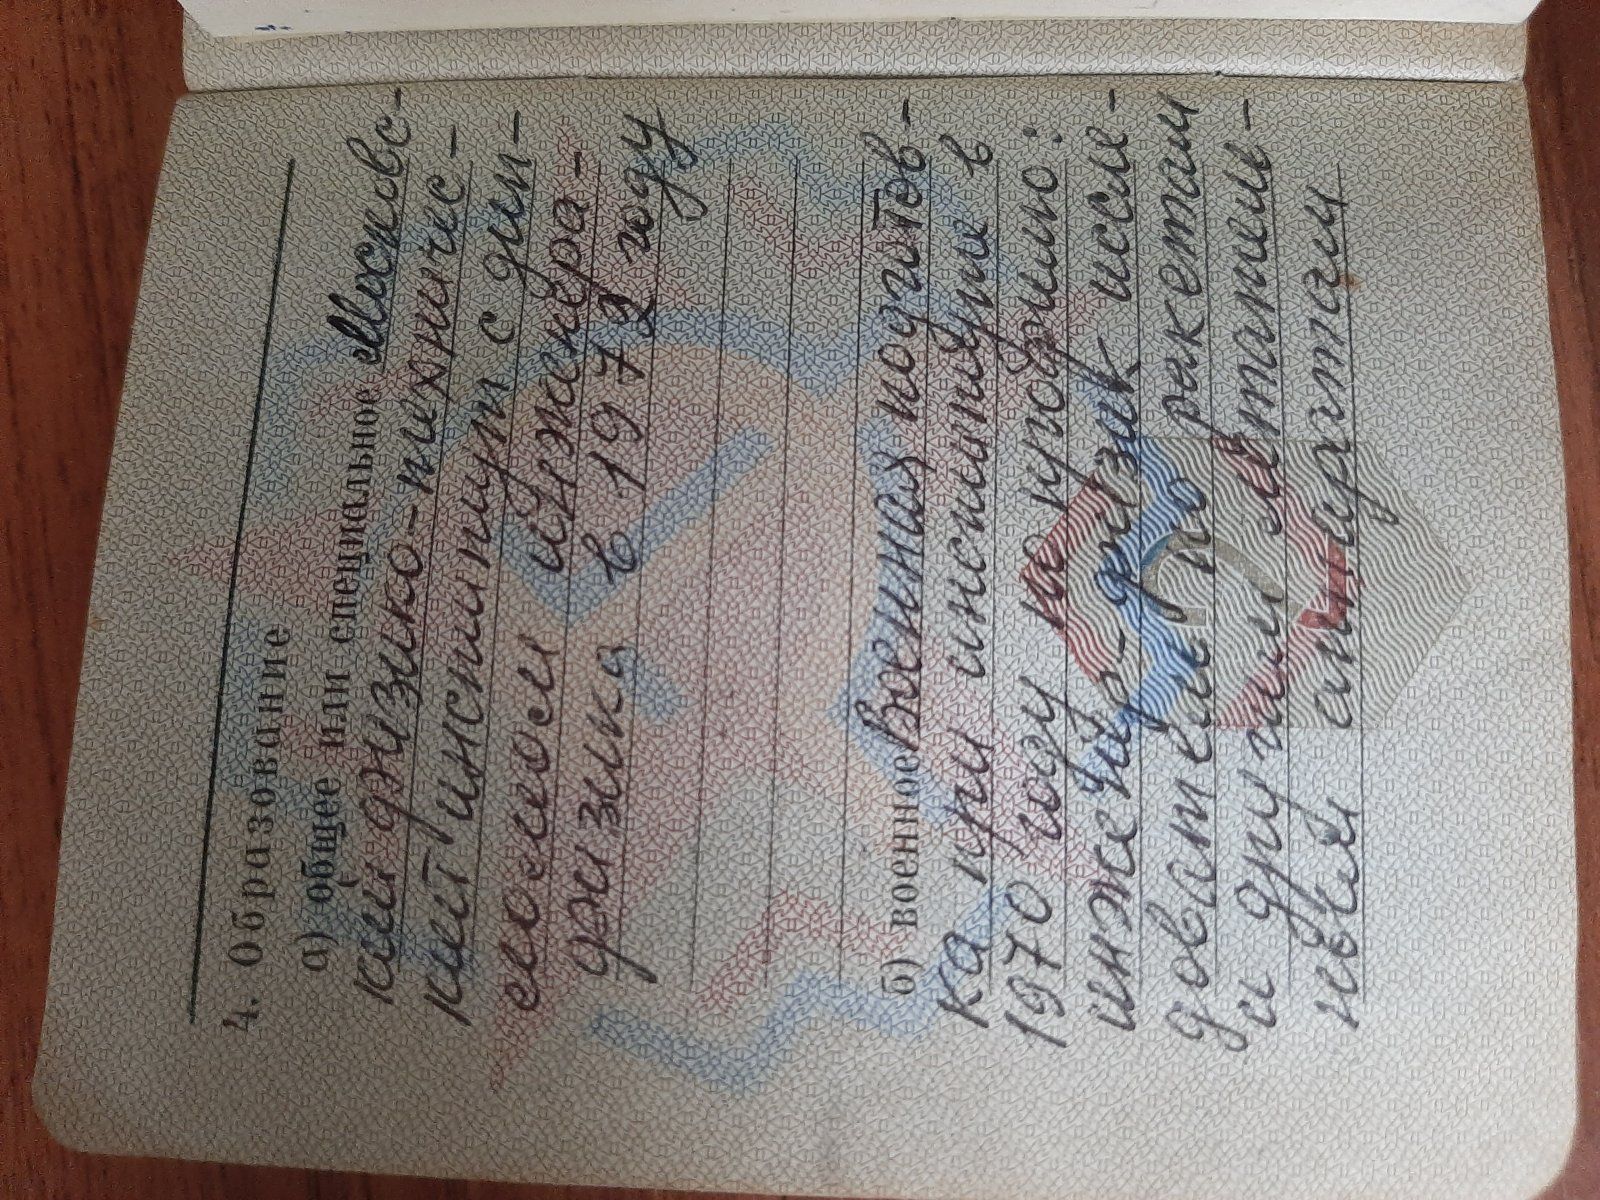 4. Образование
а) общее или специальное Московс-
кий физико-техничес-
кий институт с дип-
ломом инженера-
физика в 1972 году
б) военное Военная подготов-
ка при институте в
1970 году по профилю:
инженер-физик иссле-
дователь по ракетам
и другим летатель-
ным аппаратам